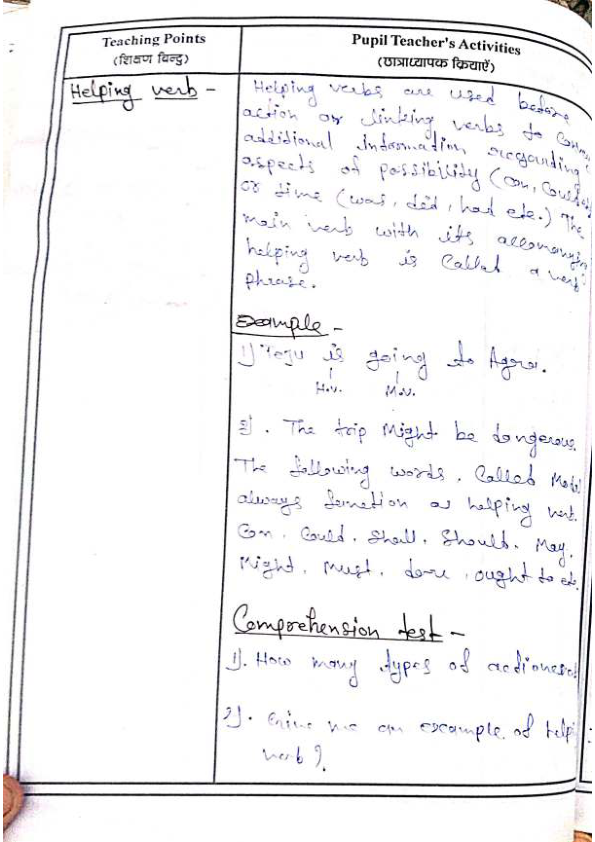 Teaching Points
(शिक्षण बिन्दु)
Pupil Teacher's Activities
(छात्राध्यापक क्रियाएँ)
Helping verb -
Helping verbs are used before
action or linking verbs to
additional information regarding
aspects of possibility (can, could
or time (was, did, had etc.) The
main verb with its
helping verb is called a verb
phrase.
Example -
1) is going to Agra.
H.V. M.V.
2). The trip Might be dangerous.
The following words. Called
always as helping verb.
Can. Could. Shall. Should. May.
Might. Must. dare, ought to etc.
Comprehension test -
1). How many types of
2). Give me an example of
verb?